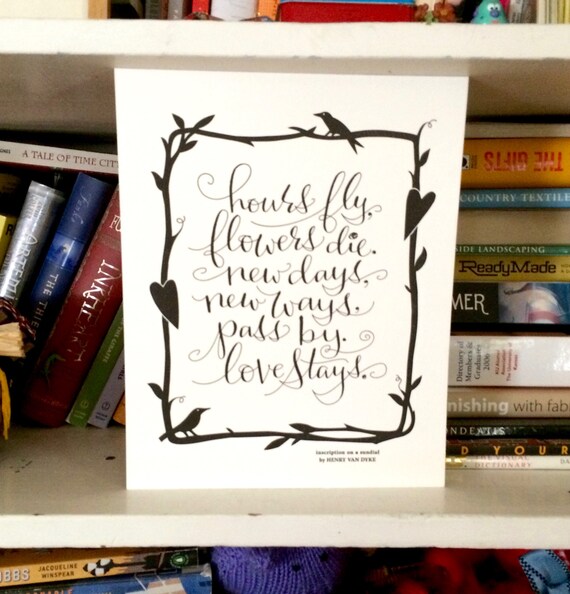 hours fly,
flowers die.
new days,
new ways.
pass by.
love stays.
inscription on a sundial
by HENRY VAN DYKE
A TALE OF TIME CITY
ARTEMIS
THE
UNKI
THE GIFTS
COUNTRY TEXTILE
SIDE LANDSCAPING
ReadyMade
MER
Directory of
Members &
Graduates
2006
nishing with fabric
ANDEATIS
D YOUR
DICTIONARY
BBS
JACQUELINE
WINSPEAR